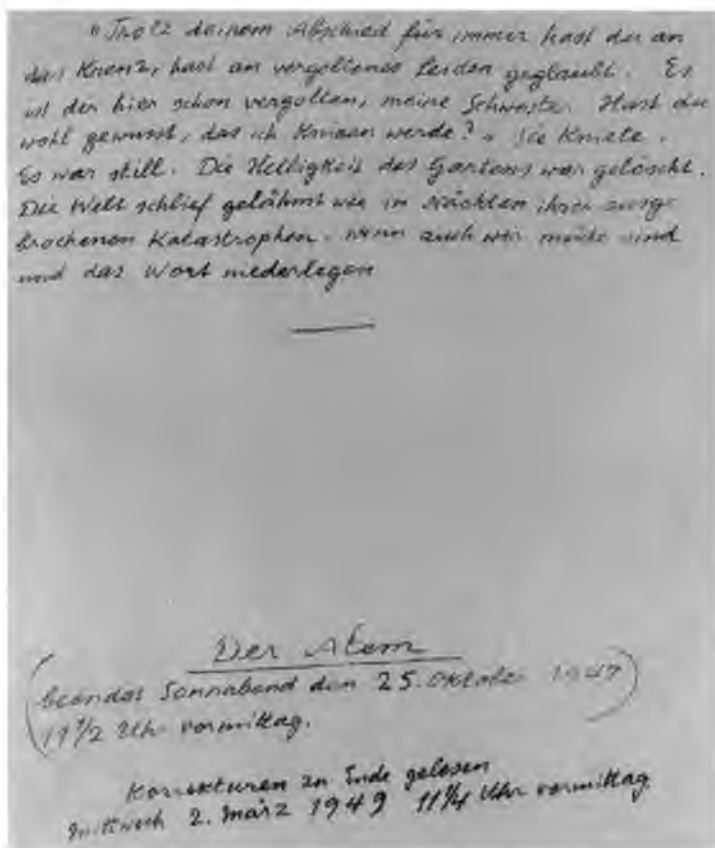 "Trotz deinem Abschied für immer hast du an
das Kreuz, hast an vergoltenes Leiden geglaubt. Es
ist dir hier schon vergolten, meine Schwester. Hast du
wohl gewusst, das ich knieen werde?" Sie kniete.
Es war still. Die Helligkeit des Gartens war gelöscht.
Die Welt schlief gelähmt wie in Nächten ihrer ausge
brochenen Katastrophen, wenn auch wir müde sind
und das Wort niederlegen
Der Atem
(beendet Sonnabend den 25. Oktober 1947
11 1/2 Uhr vormittag.)
Korrekturen zu Ende gelesen
Mittwoch 2. März 1949 11 1/4 Uhr vormittag